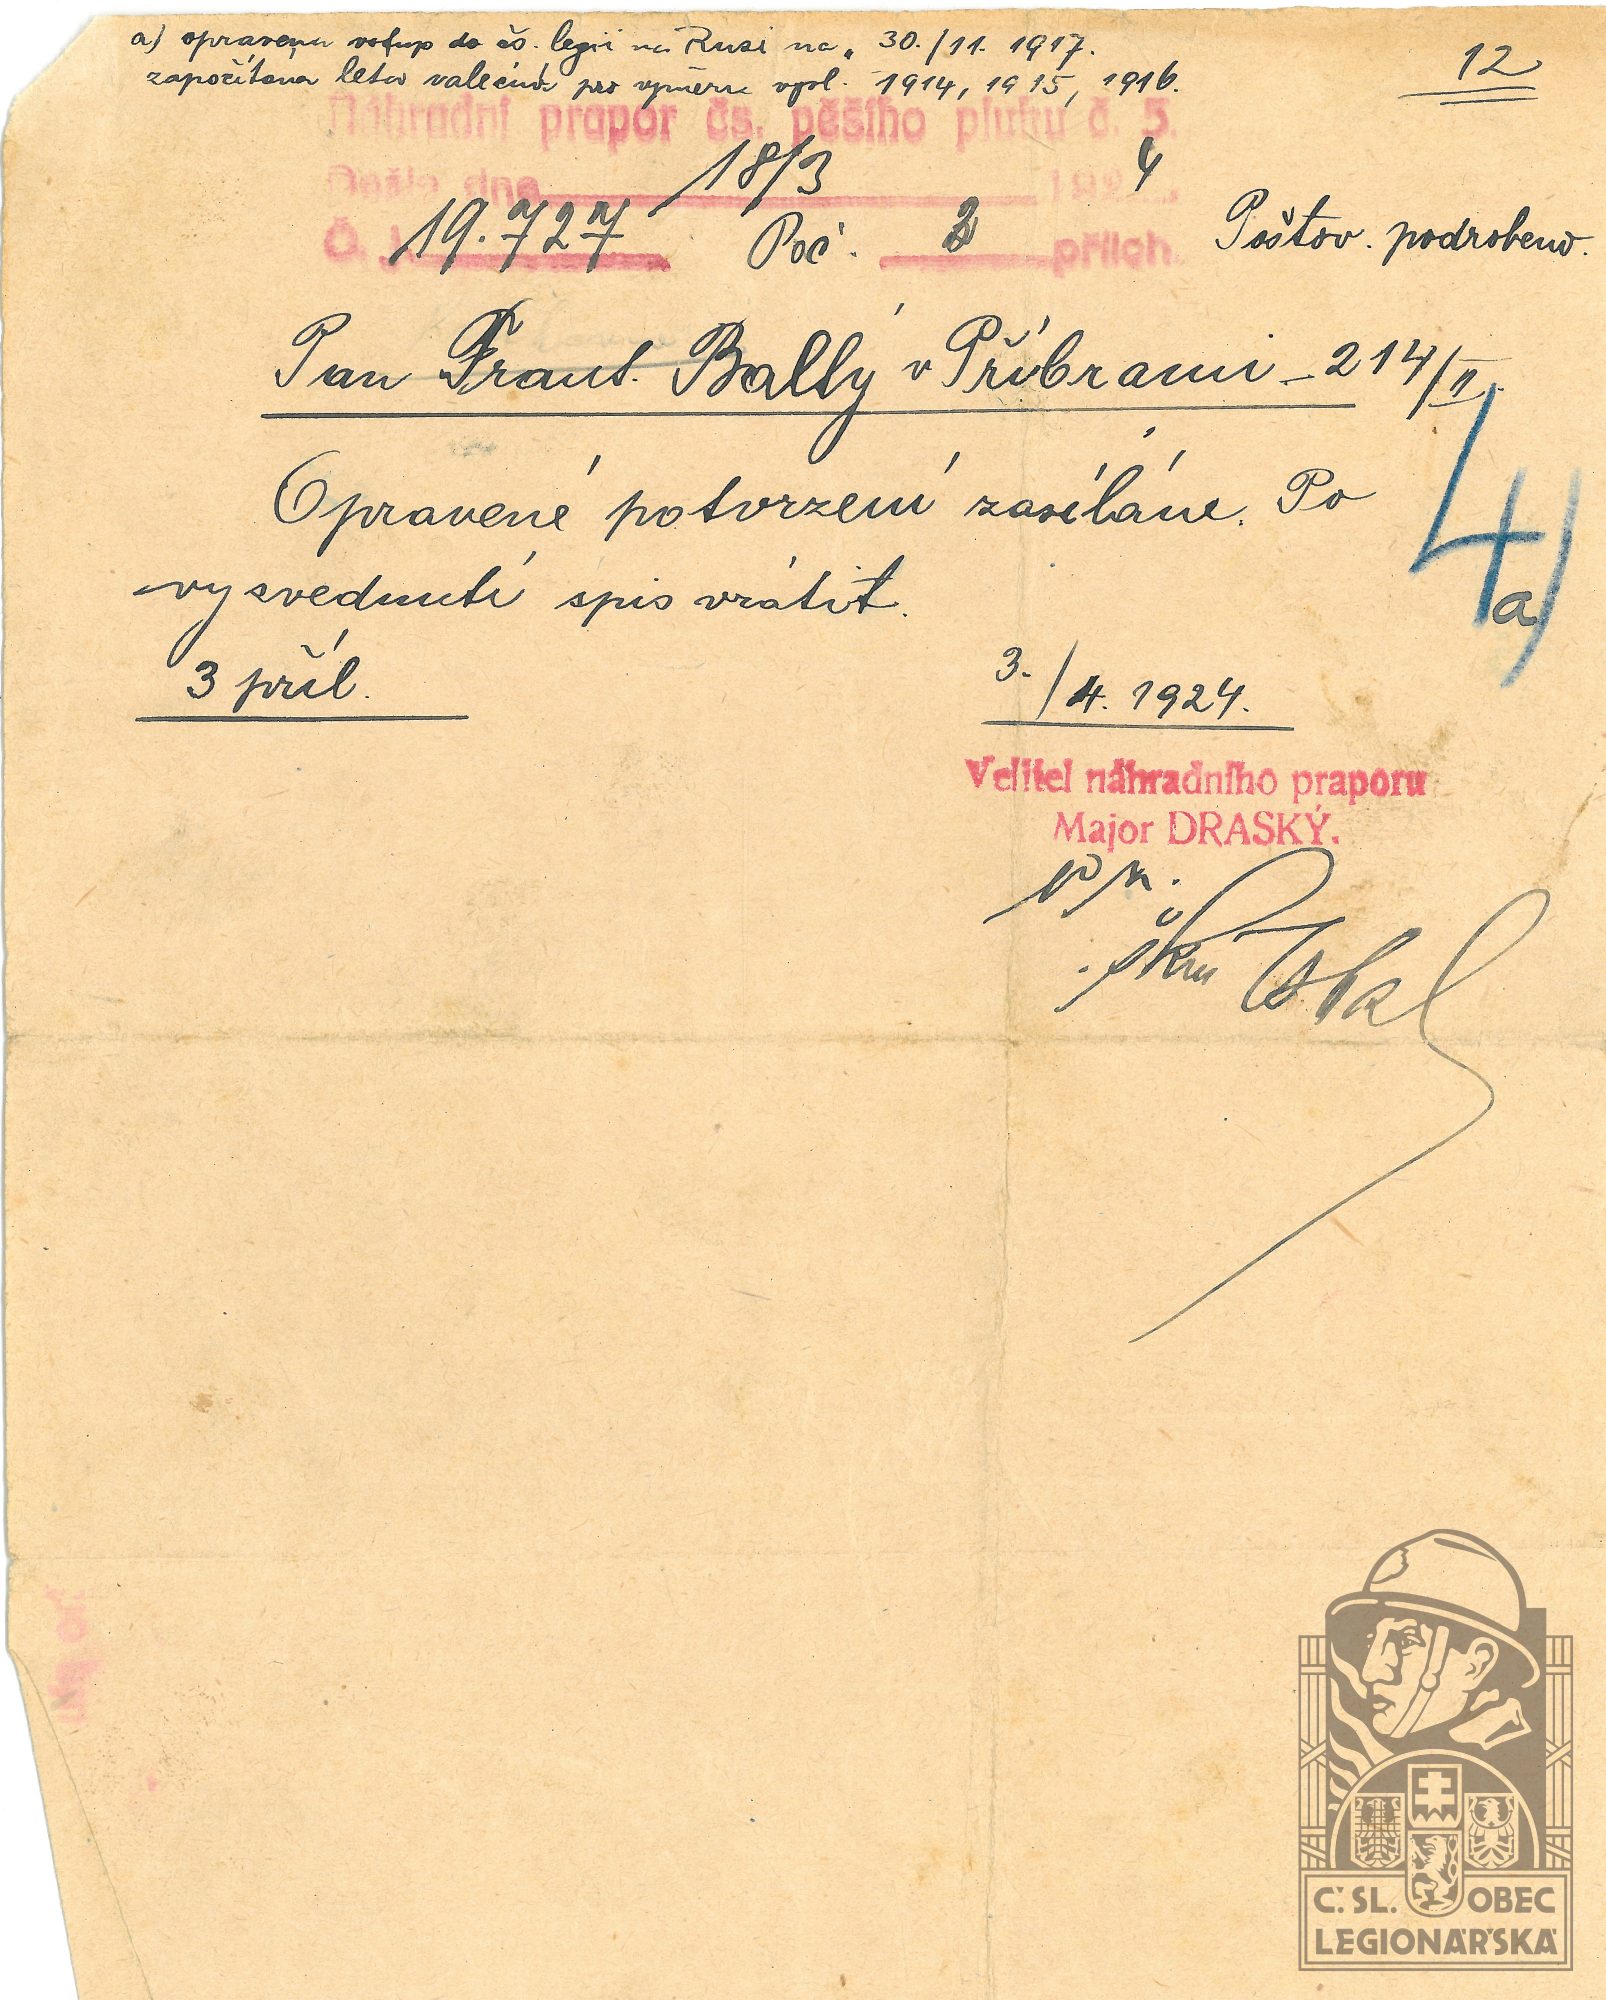 a) opravena vstup do čs. legií na Rusi na 30./11. 1917.
započítana léta válečná pro výměru vysl. 1914, 1915, 1916.
12
Náhradní prapor čs. pěšího pluku č. 5.
Došlo dne 18/3 1924
Č. j. 19.727 Poč. 2 příloh.
Poštov. podrobeno.
Pan Frant. Ballý v Příbrami - 214/II.
Opravené potvrzení zasíláne. Po
vysvednutí spis vrátit.
4a)
3 příl.
3./4. 1924.
Velitel náhradního praporu
Major DRASKÝ.
škpt
Č. SL. OBEC
LEGIONÁŘSKÁ